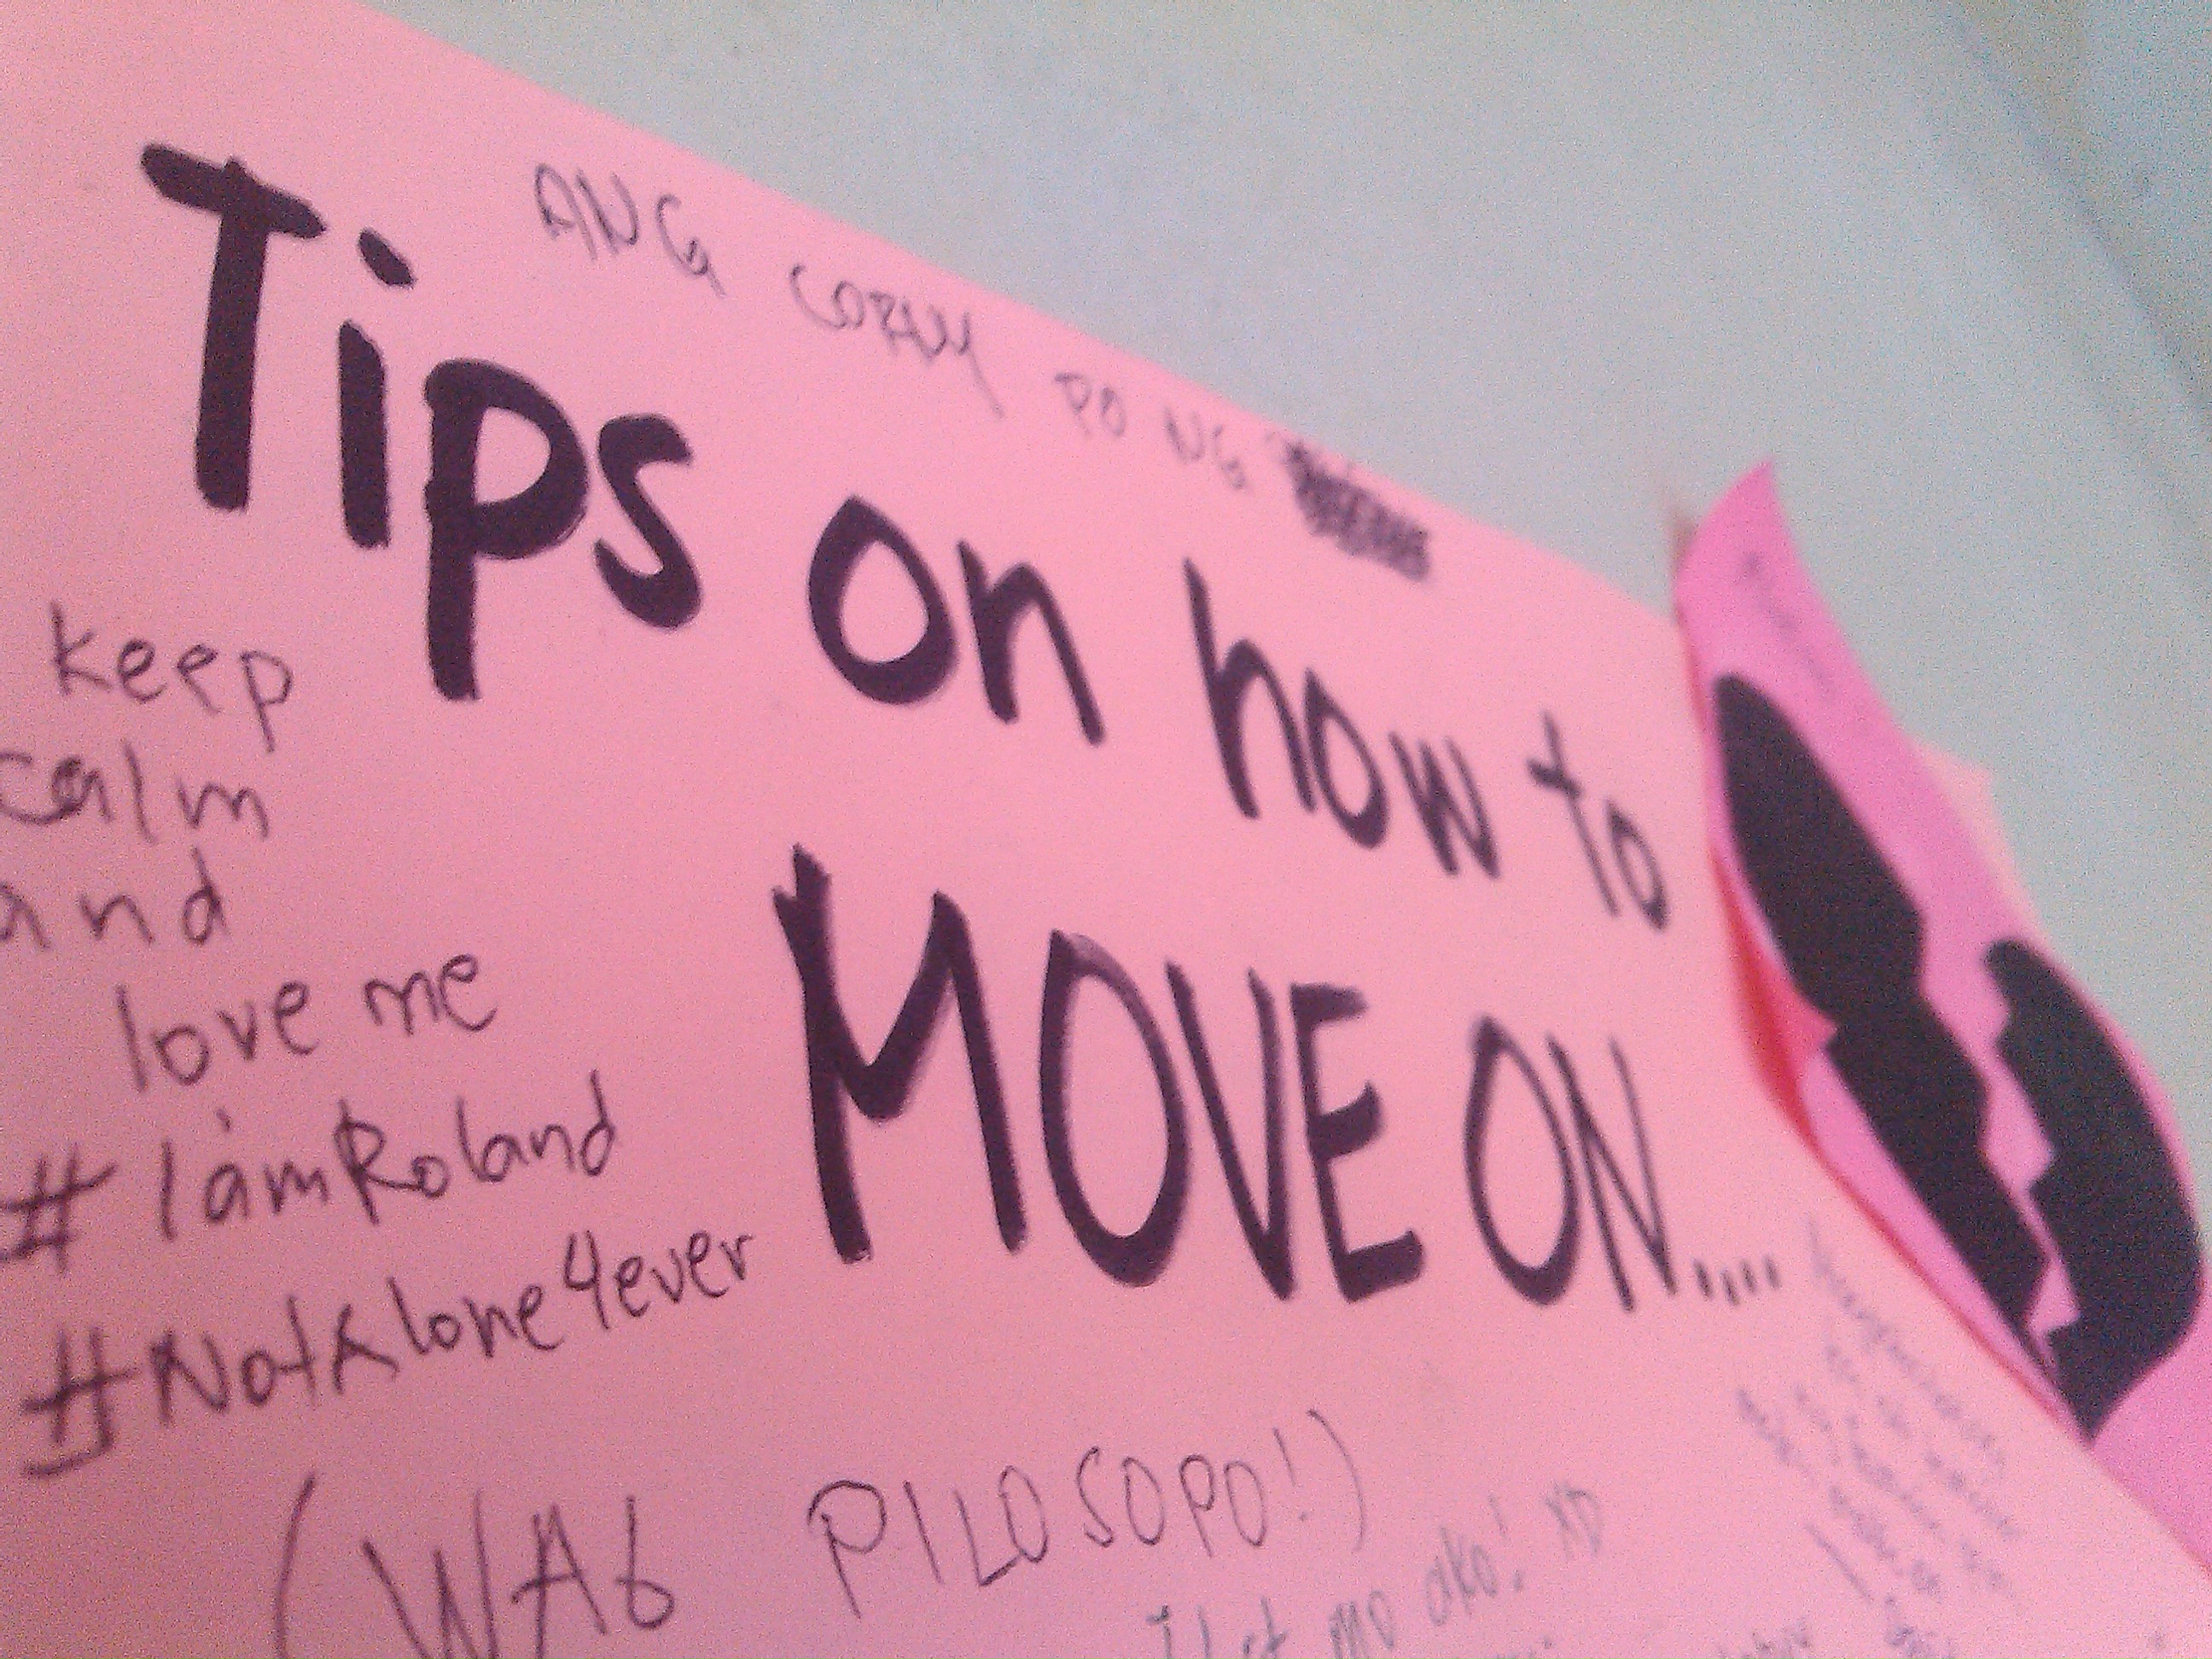 ANG CORNY PO NG
Tips on how to
MOVE ON....
keep
calm
and
love me
#IamRoland
#NotAlone4ever
(WAG PILOSOPO!)
mo ako! XD